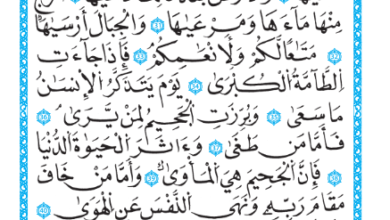 مِنْهَا مَآءَهَا وَمَرْعَىٰهَا ٣١ وَٱلْجِبَالَ أَرْسَىٰهَا
٣٢ مَتَٰعًا لَّكُمْ وَلِأَنْعَٰمِكُمْ ٣٣ فَإِذَا جَآءَتِ
ٱلطَّآمَّةُ ٱلْكُبْرَىٰ ٣٤ يَوْمَ يَتَذَكَّرُ ٱلْإِنسَٰنُ
مَا سَعَىٰ ٣٥ وَبُرِّزَتِ ٱلْجَحِيمُ لِمَن يَرَىٰ ٣٦
فَأَمَّا مَن طَغَىٰ ٣٧ وَءَاثَرَ ٱلْحَيَوٰةَ ٱلدُّنْيَا
٣٨ فَإِنَّ ٱلْجَحِيمَ هِيَ ٱلْمَأْوَىٰ ٣٩ وَأَمَّا مَنْ خَافَ
مَقَامَ رَبِّهِۦ وَنَهَى ٱلنَّفْسَ عَنِ ٱلْهَوَىٰ ٤٠